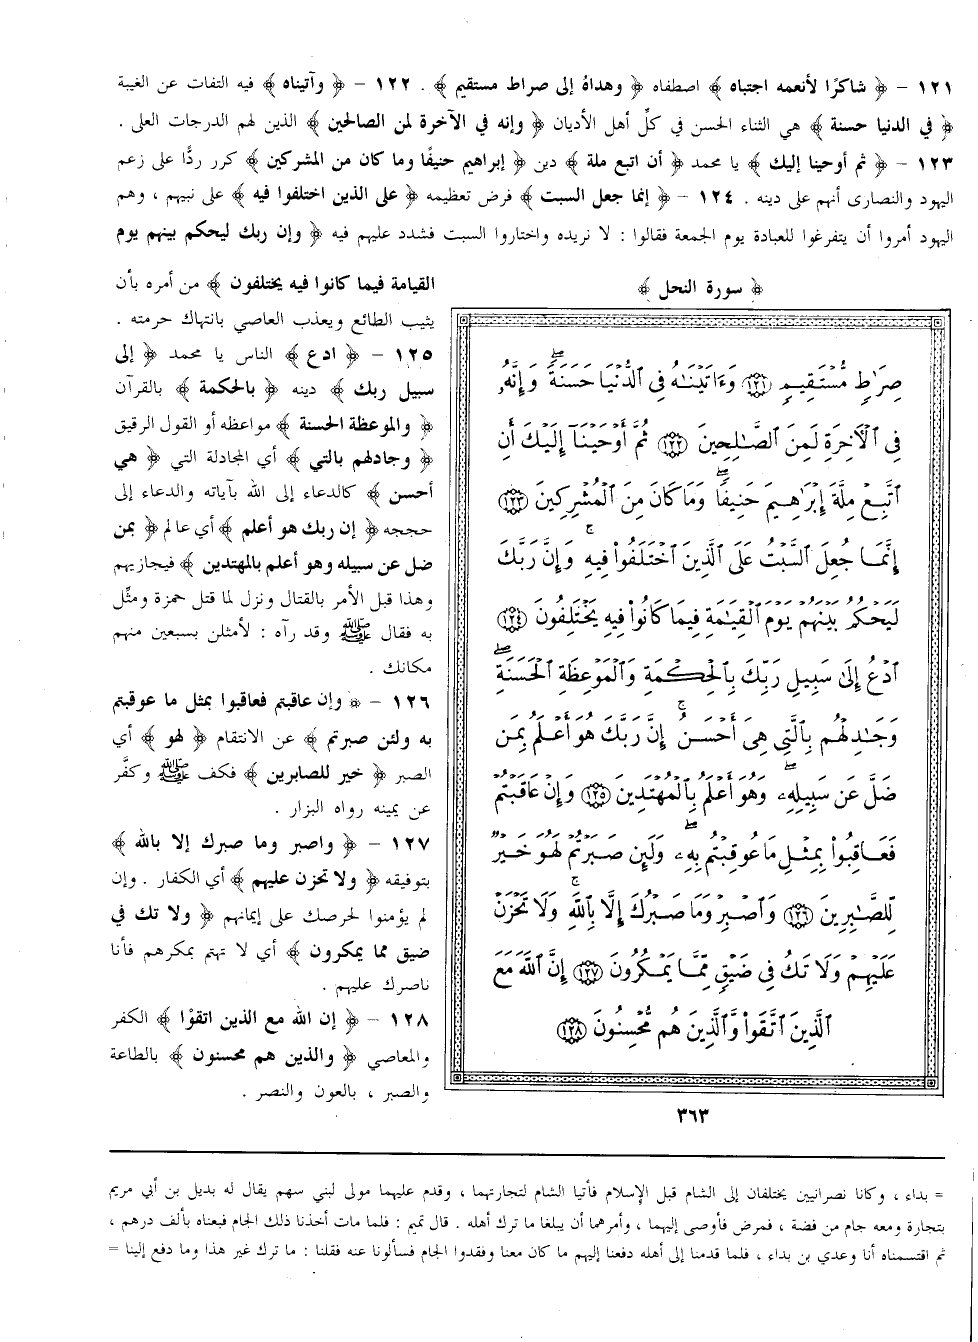 ١٢١ - ﴿ شاكرًا لأنعمه اجتباه ﴾ اصطفاه ﴿ وهداهُ إلى صراط مستقيم ﴾ . ١٢٢ - ﴿ وآتيناه ﴾ فيه التفات عن الغيبة
﴿ في الدنيا حسنة ﴾ هي الثناء الحسن في كلِّ أهل الأديان ﴿ وإنه في الآخرة لمن الصالحين ﴾ الذين لهم الدرجات العلى .
١٢٣ - ﴿ ثم أوحينا إليك ﴾ يا محمد ﴿ أن اتبع ملة ﴾ دين ﴿ إبراهيم حنيفًا وما كان من المشركين ﴾ كرر ردًّا على زعم
اليهود والنصارى أنهم على دينه . ١٢٤ - ﴿ إنما جعل السبت ﴾ فرض تعظيمه ﴿ على الذين اختلفوا فيه ﴾ على نبيهم ، وهم
اليهود أمروا أن يتفرغوا للعبادة يوم الجمعة فقالوا : لا نريده واختاروا السبت فشدد عليهم فيه ﴿ وإن ربك ليحكم بينهم يوم
القيامة فيما كانوا فيه يختلفون ﴾ من أمره بأن
يثيب الطائع ويعذب العاصي بانتهاك حرمته .
١٢٥ - ﴿ ادع ﴾ الناس يا محمد ﴿ إلى
سبيل ربك ﴾ دينه ﴿ بالحكمة ﴾ بالقرآن
﴿ والموعظة الحسنة ﴾ مواعظه أو القول الرقيق
﴿ وجادلهم بالتي ﴾ أي المجادلة التي ﴿ هي
أحسن ﴾ كالدعاء إلى الله بآياته والدعاء إلى
حججه ﴿ إن ربك هو أعلم ﴾ أي عالم ﴿ بمن
ضل عن سبيله وهو أعلم بالمهتدين ﴾ فيجازيهم
وهذا قبل الأمر بالقتال ونزل لما قتل حمزة ومثِّل
به فقال ﷺ وقد رآه : لأمثلن بسبعين منهم
مكانك .
١٢٦ - ﴿ وإن عاقبتم فعاقبوا بمثل ما عوقبتم
به ولئن صبرتم ﴾ عن الانتقام ﴿ لهو ﴾ أي
الصبر ﴿ خير للصابرين ﴾ فكف ﷺ وكفَّر
عن يمينه رواه البزار .
١٢٧ - ﴿ واصبر وما صبرك إلا بالله ﴾
بتوفيقه ﴿ ولا تحزن عليهم ﴾ أي الكفار . وإن
لم يؤمنوا لحرصك على إيمانهم ﴿ ولا تك في
ضيق مما يمكرون ﴾ أي لا تهتم بمكرهم فأنا
ناصرك عليهم .
١٢٨ - ﴿ إن الله مع الذين اتقوْا ﴾ الكفر
والمعاصي ﴿ والذين هم محسنون ﴾ بالطاعة
والصبر ، بالعون والنصر .
﴿ سورة النحل ﴾
صِرَٰطٍ مُّسْتَقِيمٍ ١٢١ وَءَاتَيْنَٰهُ فِى ٱلدُّنْيَا حَسَنَةً ۖ وَإِنَّهُۥ
فِى ٱلْءَاخِرَةِ لَمِنَ ٱلصَّٰلِحِينَ ١٢٢ ثُمَّ أَوْحَيْنَآ إِلَيْكَ أَنِ
ٱتَّبِعْ مِلَّةَ إِبْرَٰهِيمَ حَنِيفًا ۖ وَمَا كَانَ مِنَ ٱلْمُشْرِكِينَ ١٢٣
إِنَّمَا جُعِلَ ٱلسَّبْتُ عَلَى ٱلَّذِينَ ٱخْتَلَفُوا۟ فِيهِ ۚ وَإِنَّ رَبَّكَ
لَيَحْكُمُ بَيْنَهُمْ يَوْمَ ٱلْقِيَٰمَةِ فِيمَا كَانُوا۟ فِيهِ يَخْتَلِفُونَ ١٢٤
ٱدْعُ إِلَىٰ سَبِيلِ رَبِّكَ بِٱلْحِكْمَةِ وَٱلْمَوْعِظَةِ ٱلْحَسَنَةِ ۖ
وَجَٰدِلْهُم بِٱلَّتِى هِىَ أَحْسَنُ ۚ إِنَّ رَبَّكَ هُوَ أَعْلَمُ بِمَن
ضَلَّ عَن سَبِيلِهِۦ ۖ وَهُوَ أَعْلَمُ بِٱلْمُهْتَدِينَ ١٢٥ وَإِنْ عَاقَبْتُمْ
فَعَاقِبُوا۟ بِمِثْلِ مَا عُوقِبْتُم بِهِۦ ۖ وَلَئِن صَبَرْتُمْ لَهُوَ خَيْرٌ
لِّلصَّٰبِرِينَ ١٢٦ وَٱصْبِرْ وَمَا صَبْرُكَ إِلَّا بِٱللَّهِ ۚ وَلَا تَحْزَنْ
عَلَيْهِمْ وَلَا تَكُ فِى ضَيْقٍ مِّمَّا يَمْكُرُونَ ١٢٧ إِنَّ ٱللَّهَ مَعَ
ٱلَّذِينَ ٱتَّقَوا۟ وَّٱلَّذِينَ هُم مُّحْسِنُونَ ١٢٨
٣٦٣
= بداء ، وكانا نصرانيين يختلفان إلى الشام قبل الإسلام فأتيا الشام لتجارتهما ، وقدم عليهما مولى لبني سهم يقال له بديل بن أبي مريم
بتجارة ومعه جام من فضة ، فمرض فأوصى إليهما ، وأمرهما أن يبلغا ما ترك أهله . قال تميم : فلما مات أخذنا ذلك الجام فبعناه بألف درهم ،
ثم اقتسمناه أنا وعدي بن بداء ، فلما قدمنا إلى أهله دفعنا إليهم ما كان معنا وفقدوا الجام فسألونا عنه فقلنا : ما ترك غير هذا وما دفع إلينا =